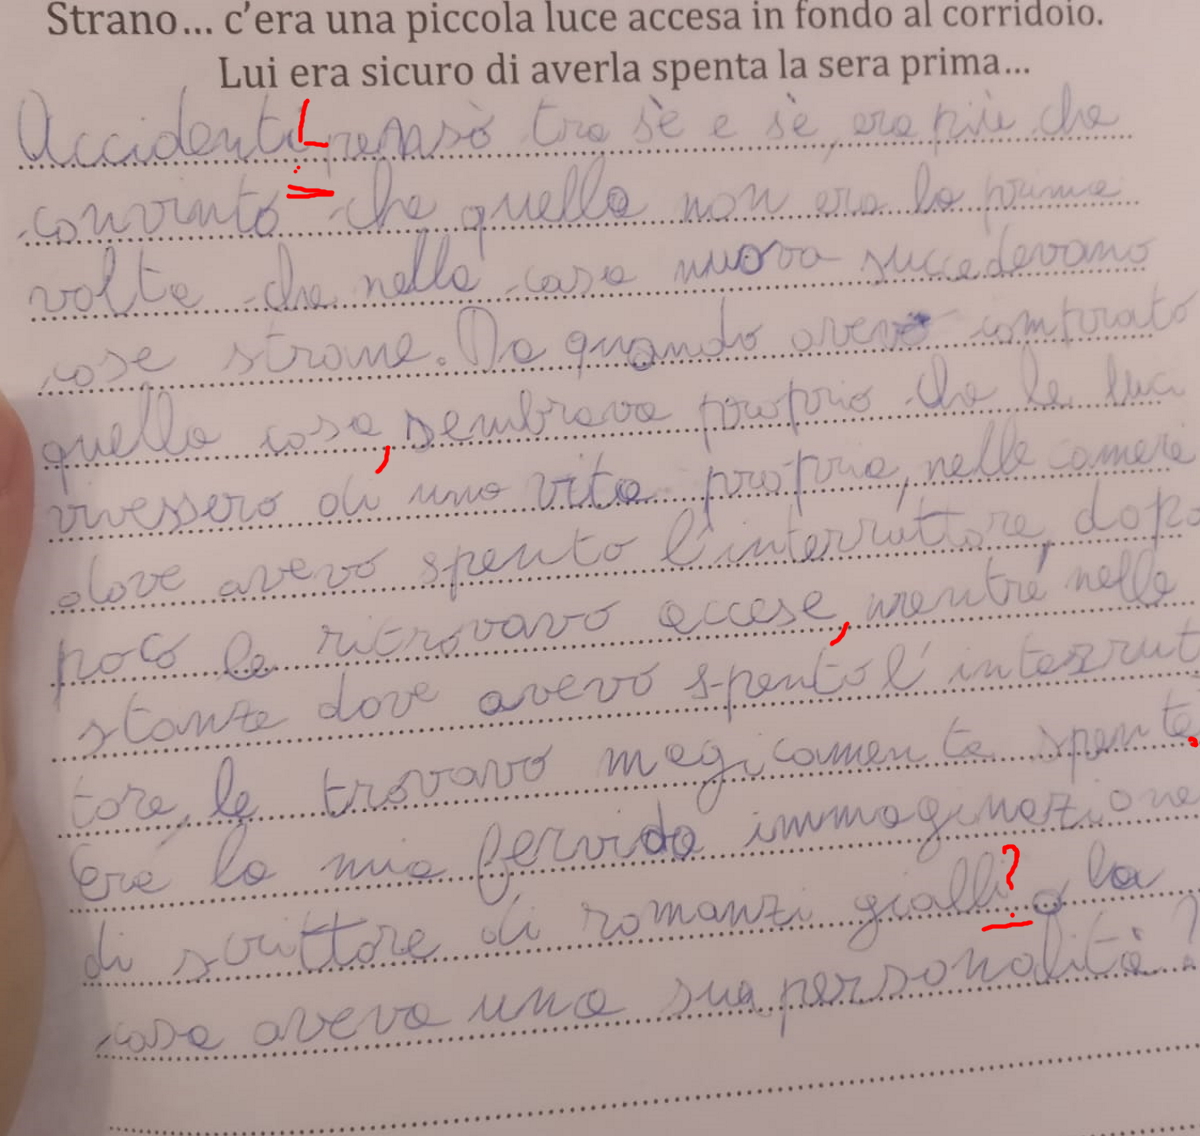 Strano... c'era una piccola luce accesa in fondo al corridoio.
Lui era sicuro di averla spenta la sera prima...
Accidenti! pensò tra sè e sè, era più che
convinto che quella non era la prima
volta che nella casa nuova succedevano
cose strane. Da quando avevo comprato
quella casa, sembrava proprio che le luci
vivessero di una vita propria, nelle camere
dove avevo spento l'interruttore, dopo
poco le ritrovavo accese, mentre nelle
stanze dove avevo spento l'interrut
tore, le trovavo magicamente spente.
Era la mia fervida immaginazione
di scrittore di romanzi gialli? o la
casa aveva una sua personalità?